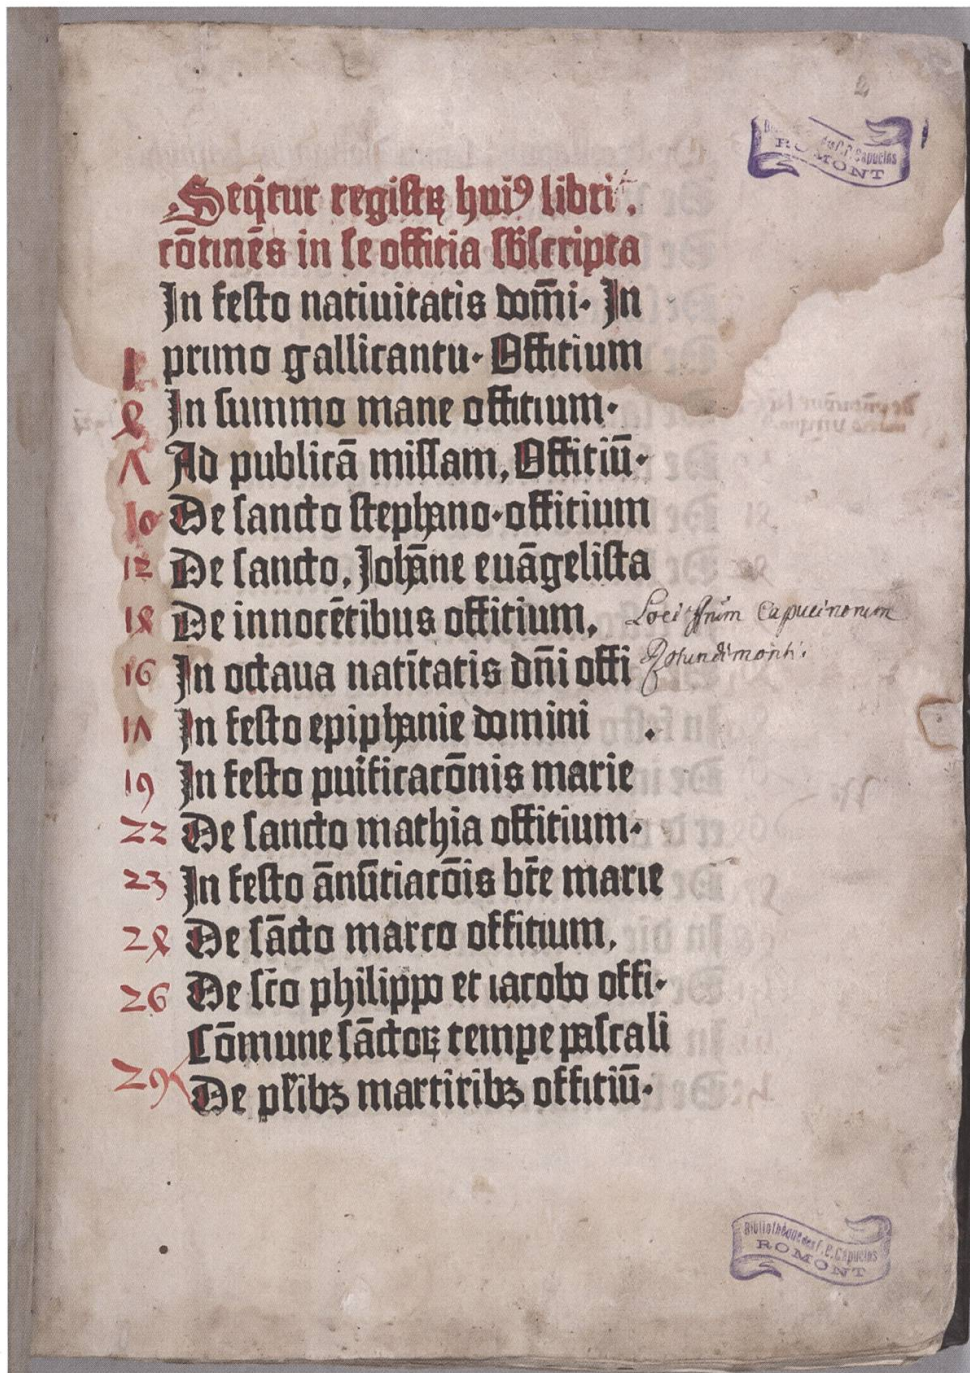 2
Bibliothèque des P. P. Capucins
ROMONT
Seq̄tur registꝝ huiꝰ libri.
cōtinēs in se offitia sb̄scripta
In festo natiuitatis dom̄i· In
1 primo gallicantu· Offitium
4 In summo mane offitium·
7 Ad publicā missam, Offitiū·
10 De sancto stephano·offitium
12 De sancto, Joh̄ane euāgelista
14 De innocētibus offitium,
Loci ffrūm Capucinorum
16 In octaua natītatis dn̄i offi
Rotundimonti.
17 In festo epiphanie domini
19 In festo puificacōnis marie
22 De sancto mathia offitium·
23 In festo ānūtiacōis bt̄e marie
24 De sācto marco offitium,
26 De sc̄o philippo et iacobo offi·
Cōmune sāctoꝝ temꝑe pascali
29 De pl̄ibꝫ martiribꝫ offitiū·
Bibliothèque des P. P. Capucins
ROMONT